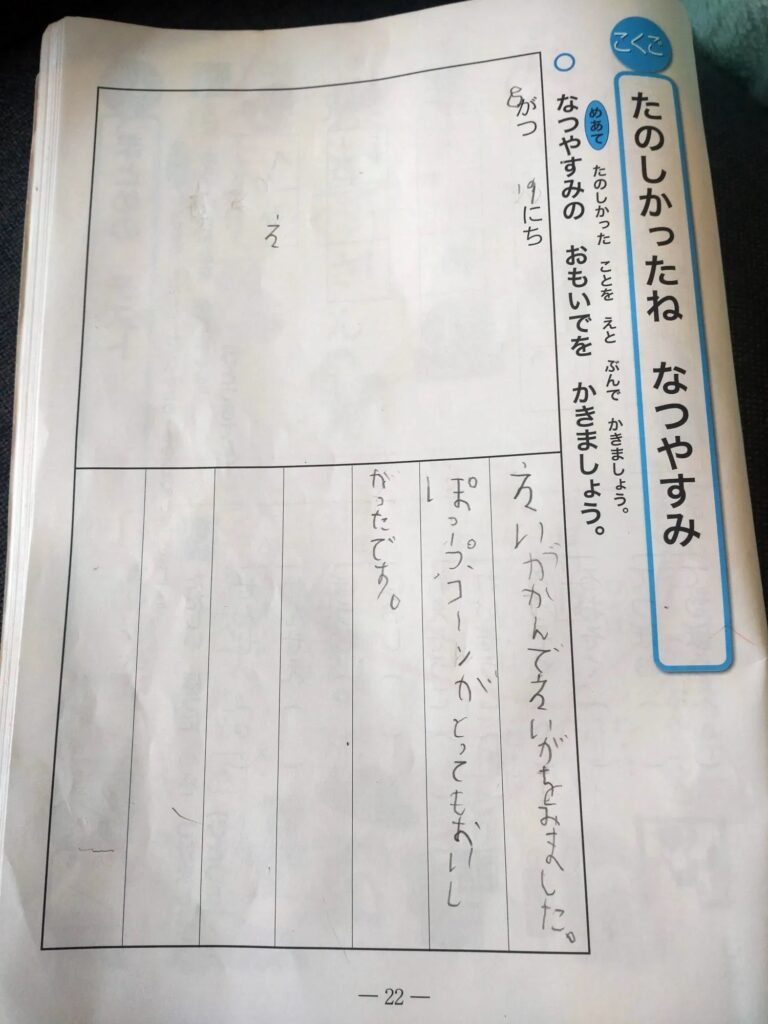 こくご
たのしかったね　なつやすみ
めあて　たのしかった　ことを　えと　ぶんで　かきましょう。
○　なつやすみの　おもいでを　かきましょう。
8がつ　19にち
え
えいがかんでえいがをみました。
ぽっぷコーンがとってもおいし
かったです。
— 22 —